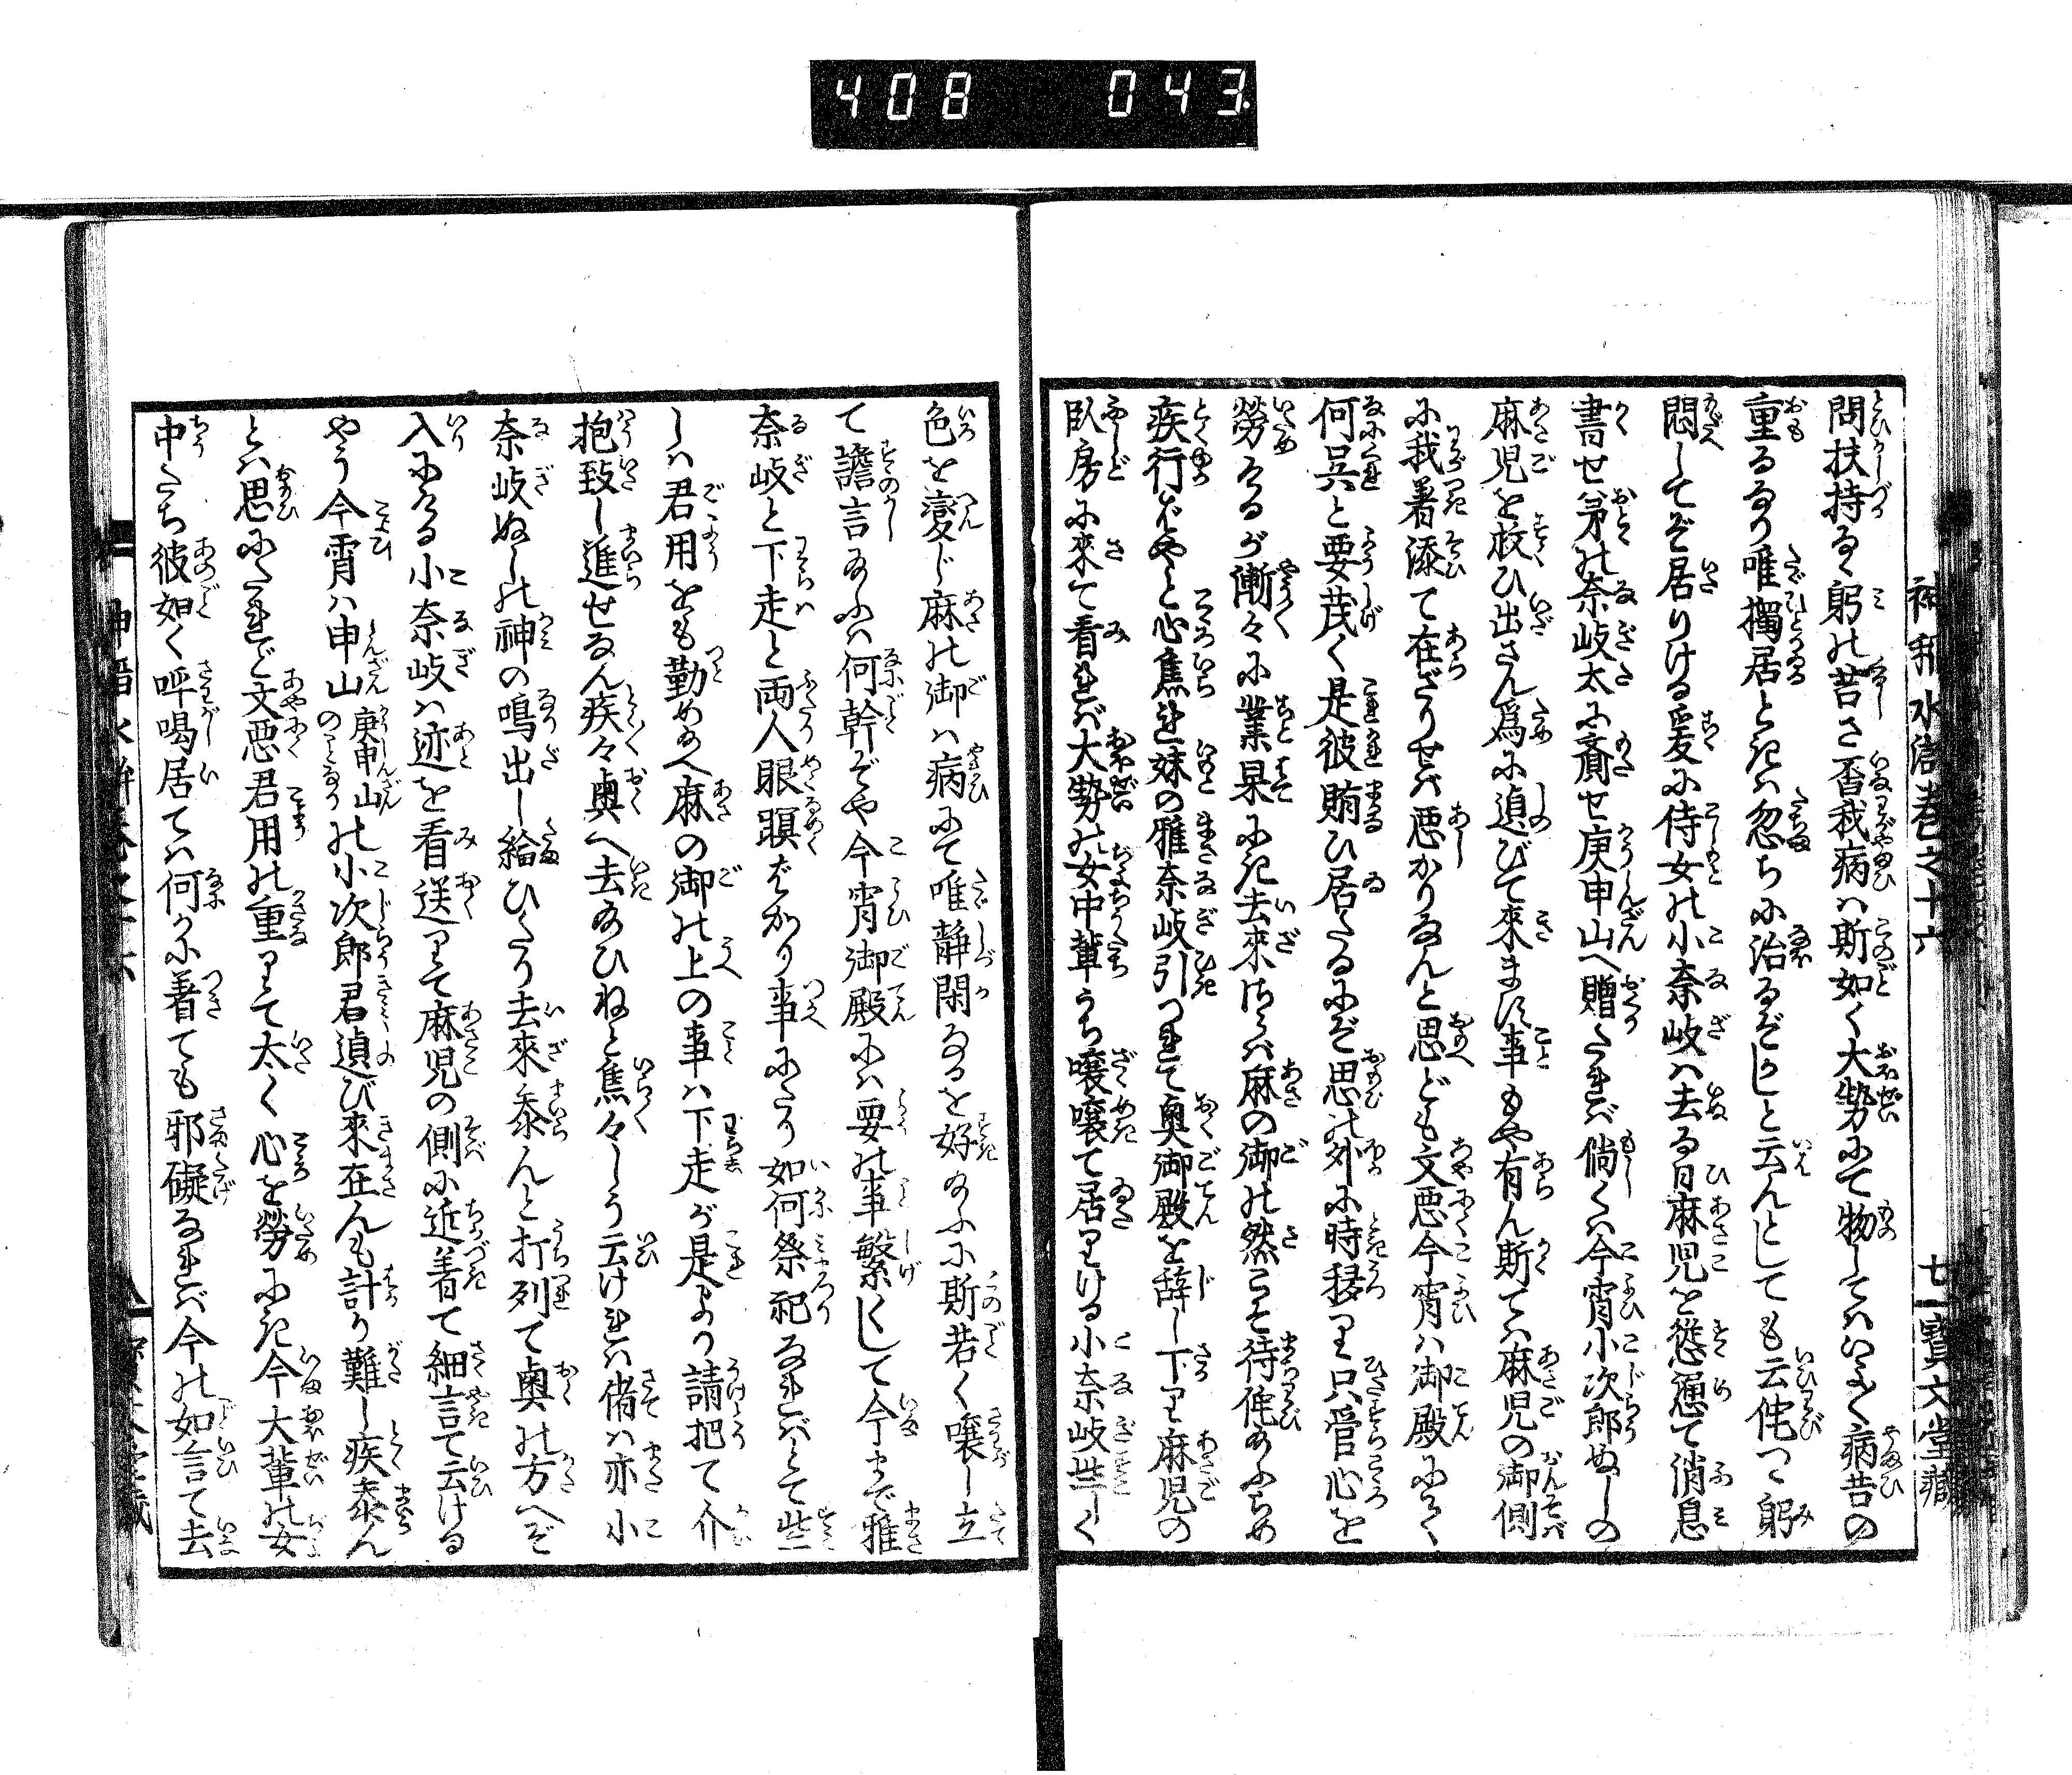 408 043
神稲水滸巻之十六
廿一寶文堂藏
問扶持るゝ躬の苦さ否我病ハ斯如く大勢にて物してハいよゝ病苦の
重るなり唯獨居ときハ忽ち治るぞかしと云んとしても云侘つゝ躬
悶してぞ居りける爰に侍女の小奈岐ハ去る日麻児を慫慂て消息
書せ弟の奈岐太に齎せ庚申山へ贈たれバ倘くハ今宵小次郎ぬしの
麻児を救ひ出さん爲に遉びて來ます事もや有ん斯てハ麻児の御側
に我着添て在ざりせバ悪かりなんと思ども文悪今宵ハ御殿にて
何呉と要茂く是彼賄ひ居たるにぞ思の外に時移り只管心を
勞けるが漸々に業果にき去來さらバ麻の御の然こそ待侘給ふらめ
疾行ばやと心焦れ妹の雅奈岐引つれて奥御殿を辞し下り麻児の
臥房に來て看れバ大勢の女中輩うち噪噪て居りける小奈岐些しく
色を變じ麻の御ハ病にて唯静閑なるを好給ふに斯若く噪し立
て譫言給ふハ何幹ぞや今宵御殿にハ要の事繁くして今まで雅
奈岐と下走と両人眼瞑ばかり事にたり如何祭祀なれバとて些
しハ君用をも勤め給へ麻の御の上の事ハ下走が是より請把て介
抱致し進せなん疾々奥へ去給ひねと焦々しう云けれハ偖ハ亦小
奈岐ぬしの神の鳴出し給ひたり去來泰んと打列て奥の方へぞ
入にける小奈岐ハ迹を看送りて麻児の側に近着て細言て云ける
やう今宵ハ申山庚申山のことなりの小次郎君遉び來在んも計り難し疾泰ん
とハ思にたれど文悪君用の重りて太く心を勞にき今大輩の女
中たち彼如く呼喝居てハ何かに着ても邪礙なれバ今の如言て去